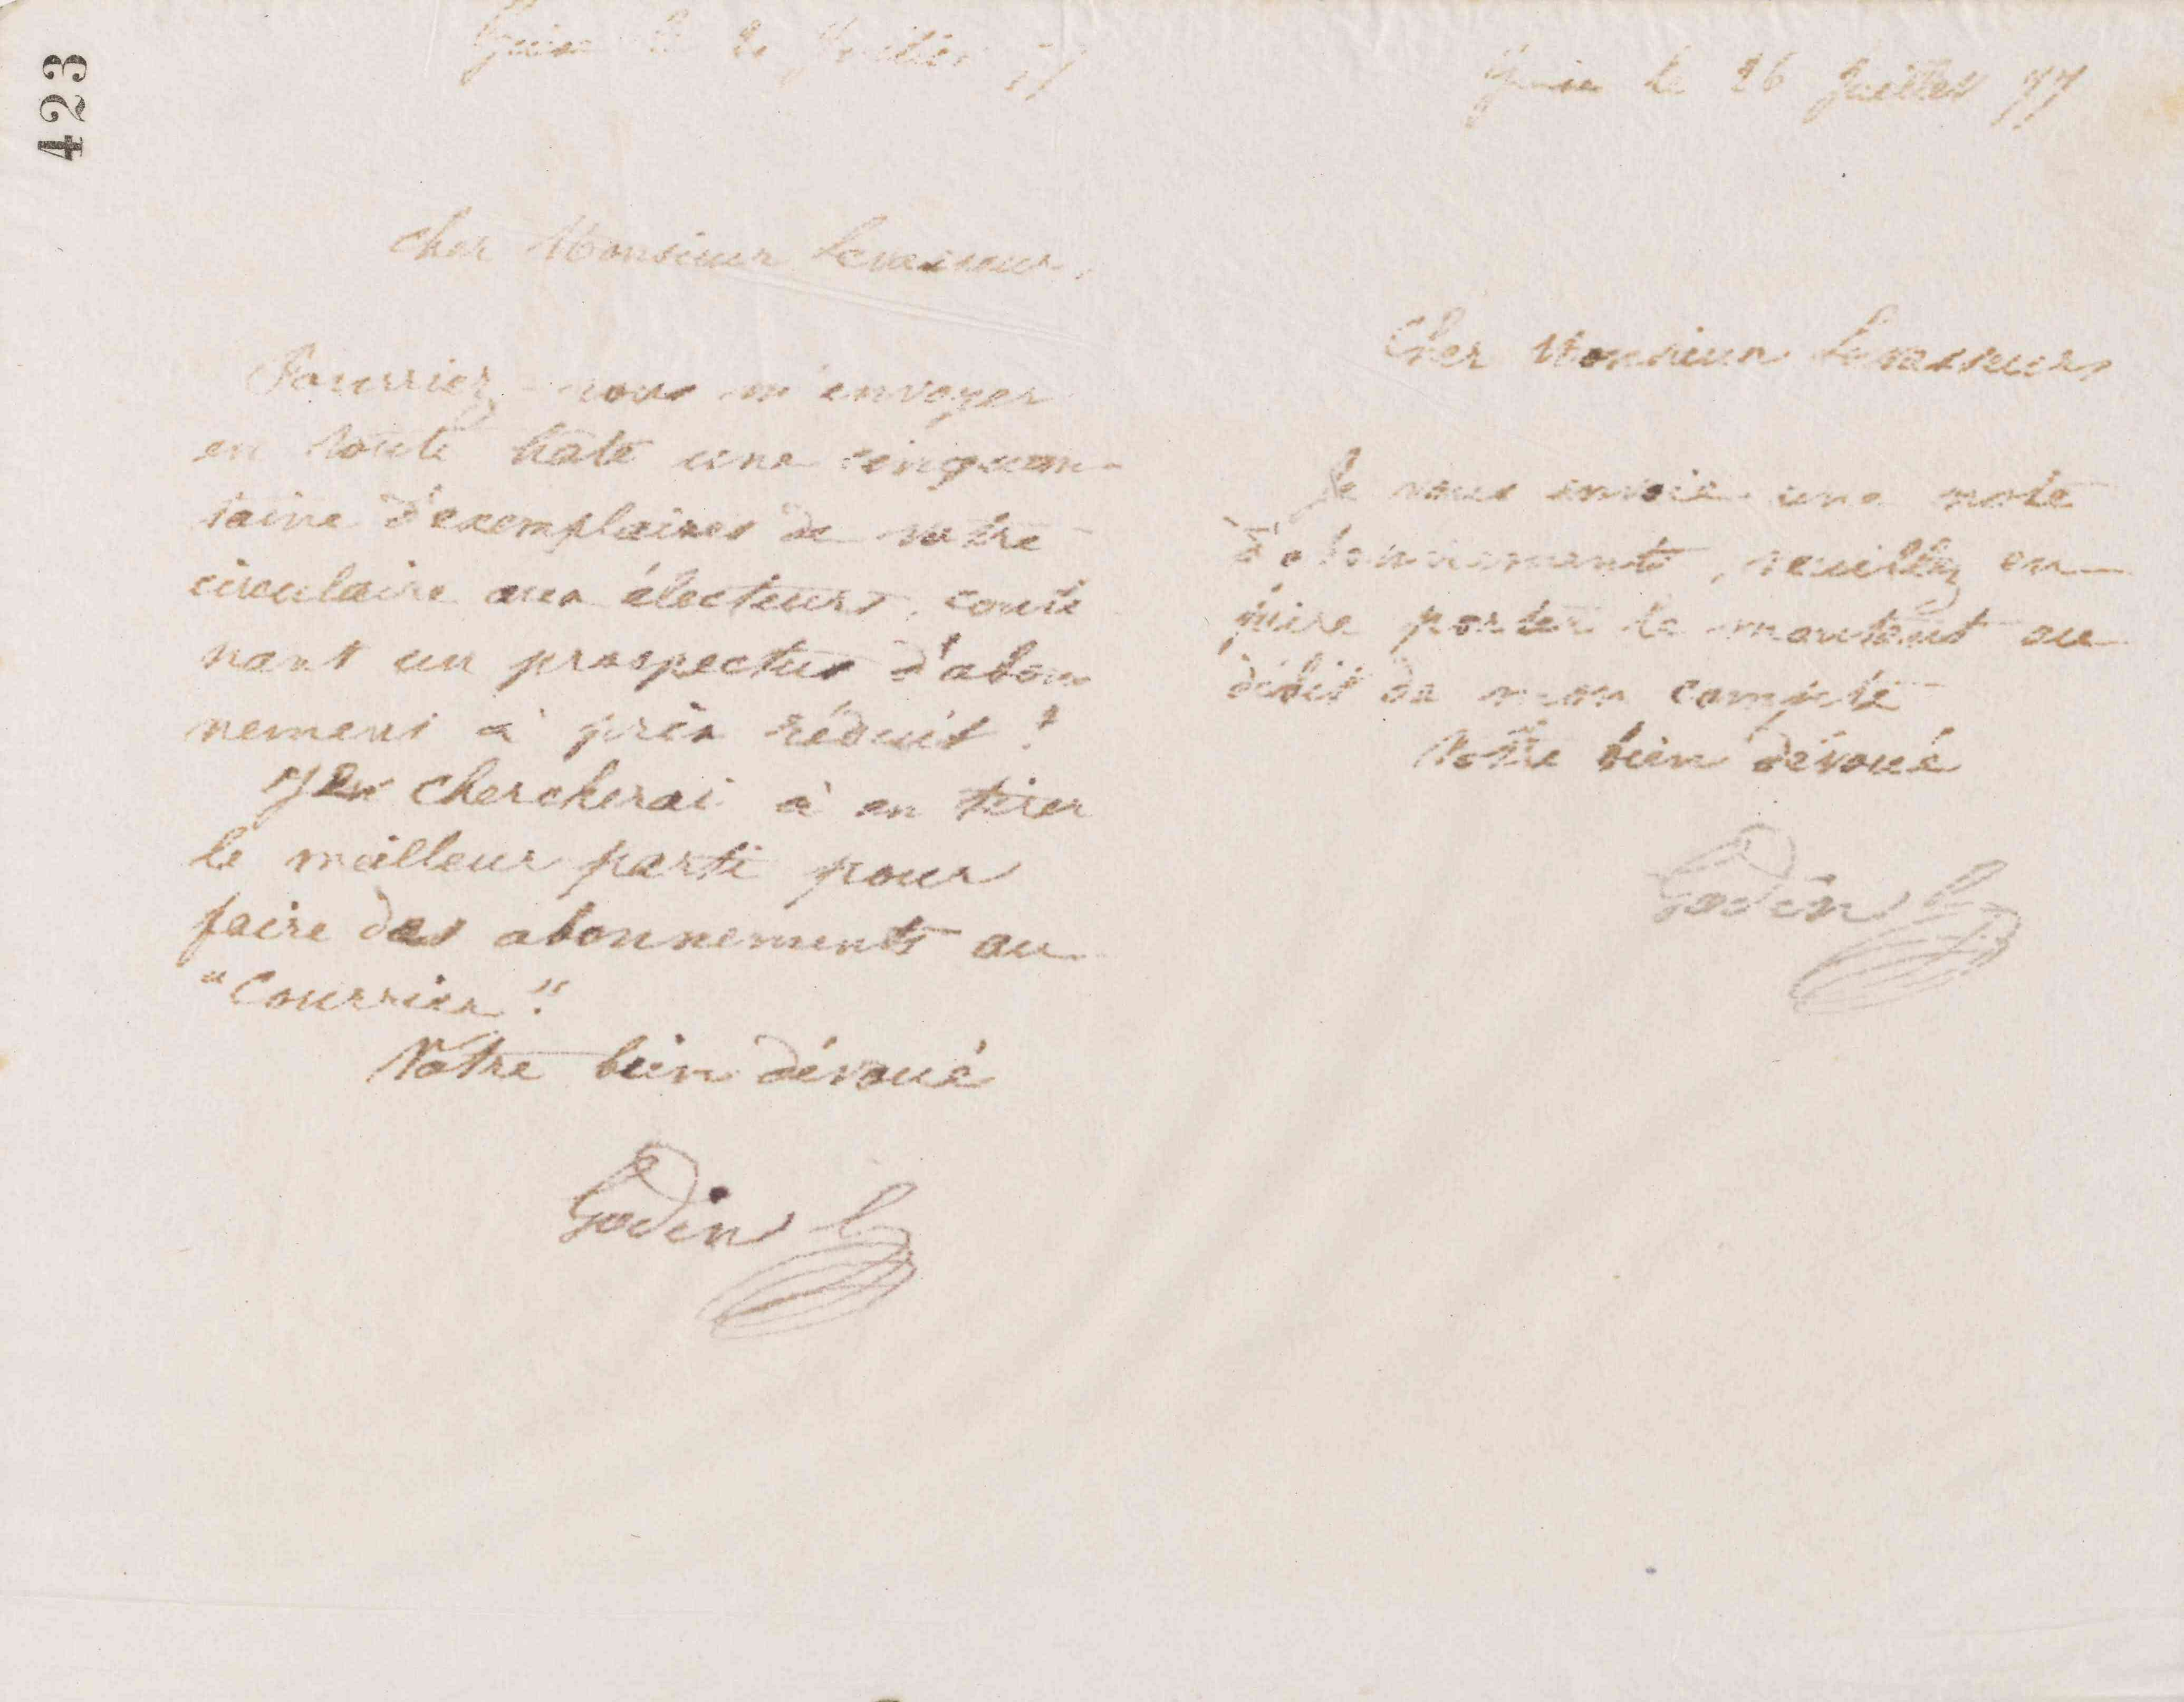 423
Guise le 20 Juillet 77
Cher Monsieur Levasseur,
Pourriez-vous m'envoyer
en toute hâte une cinquan-
taine d'exemplaires de votre
circulaire aux électeurs, conte
nant un prospectus d'abon
nement à prix réduit ?
Je chercherai à en tirer
le meilleur parti pour
faire des abonnements au
"Courrier".
Votre bien dévoué
Godin
Guise le 26 Juillet 77
Cher Monsieur Levasseur,
Je vous envoie une note
d'abonnements, veuillez en
faire porter le montant au
débit de mon compte
Votre bien dévoué
Godin